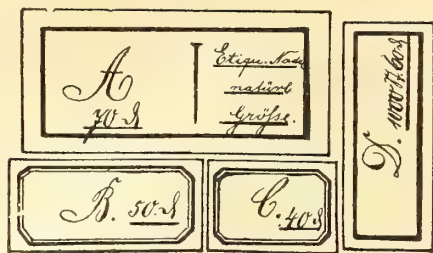 A
70 ₰
Etiqu. Nadel
natürl.
Größe.
B. 50 ₰
C. 40 ₰
D. 1000 St. 60 ₰